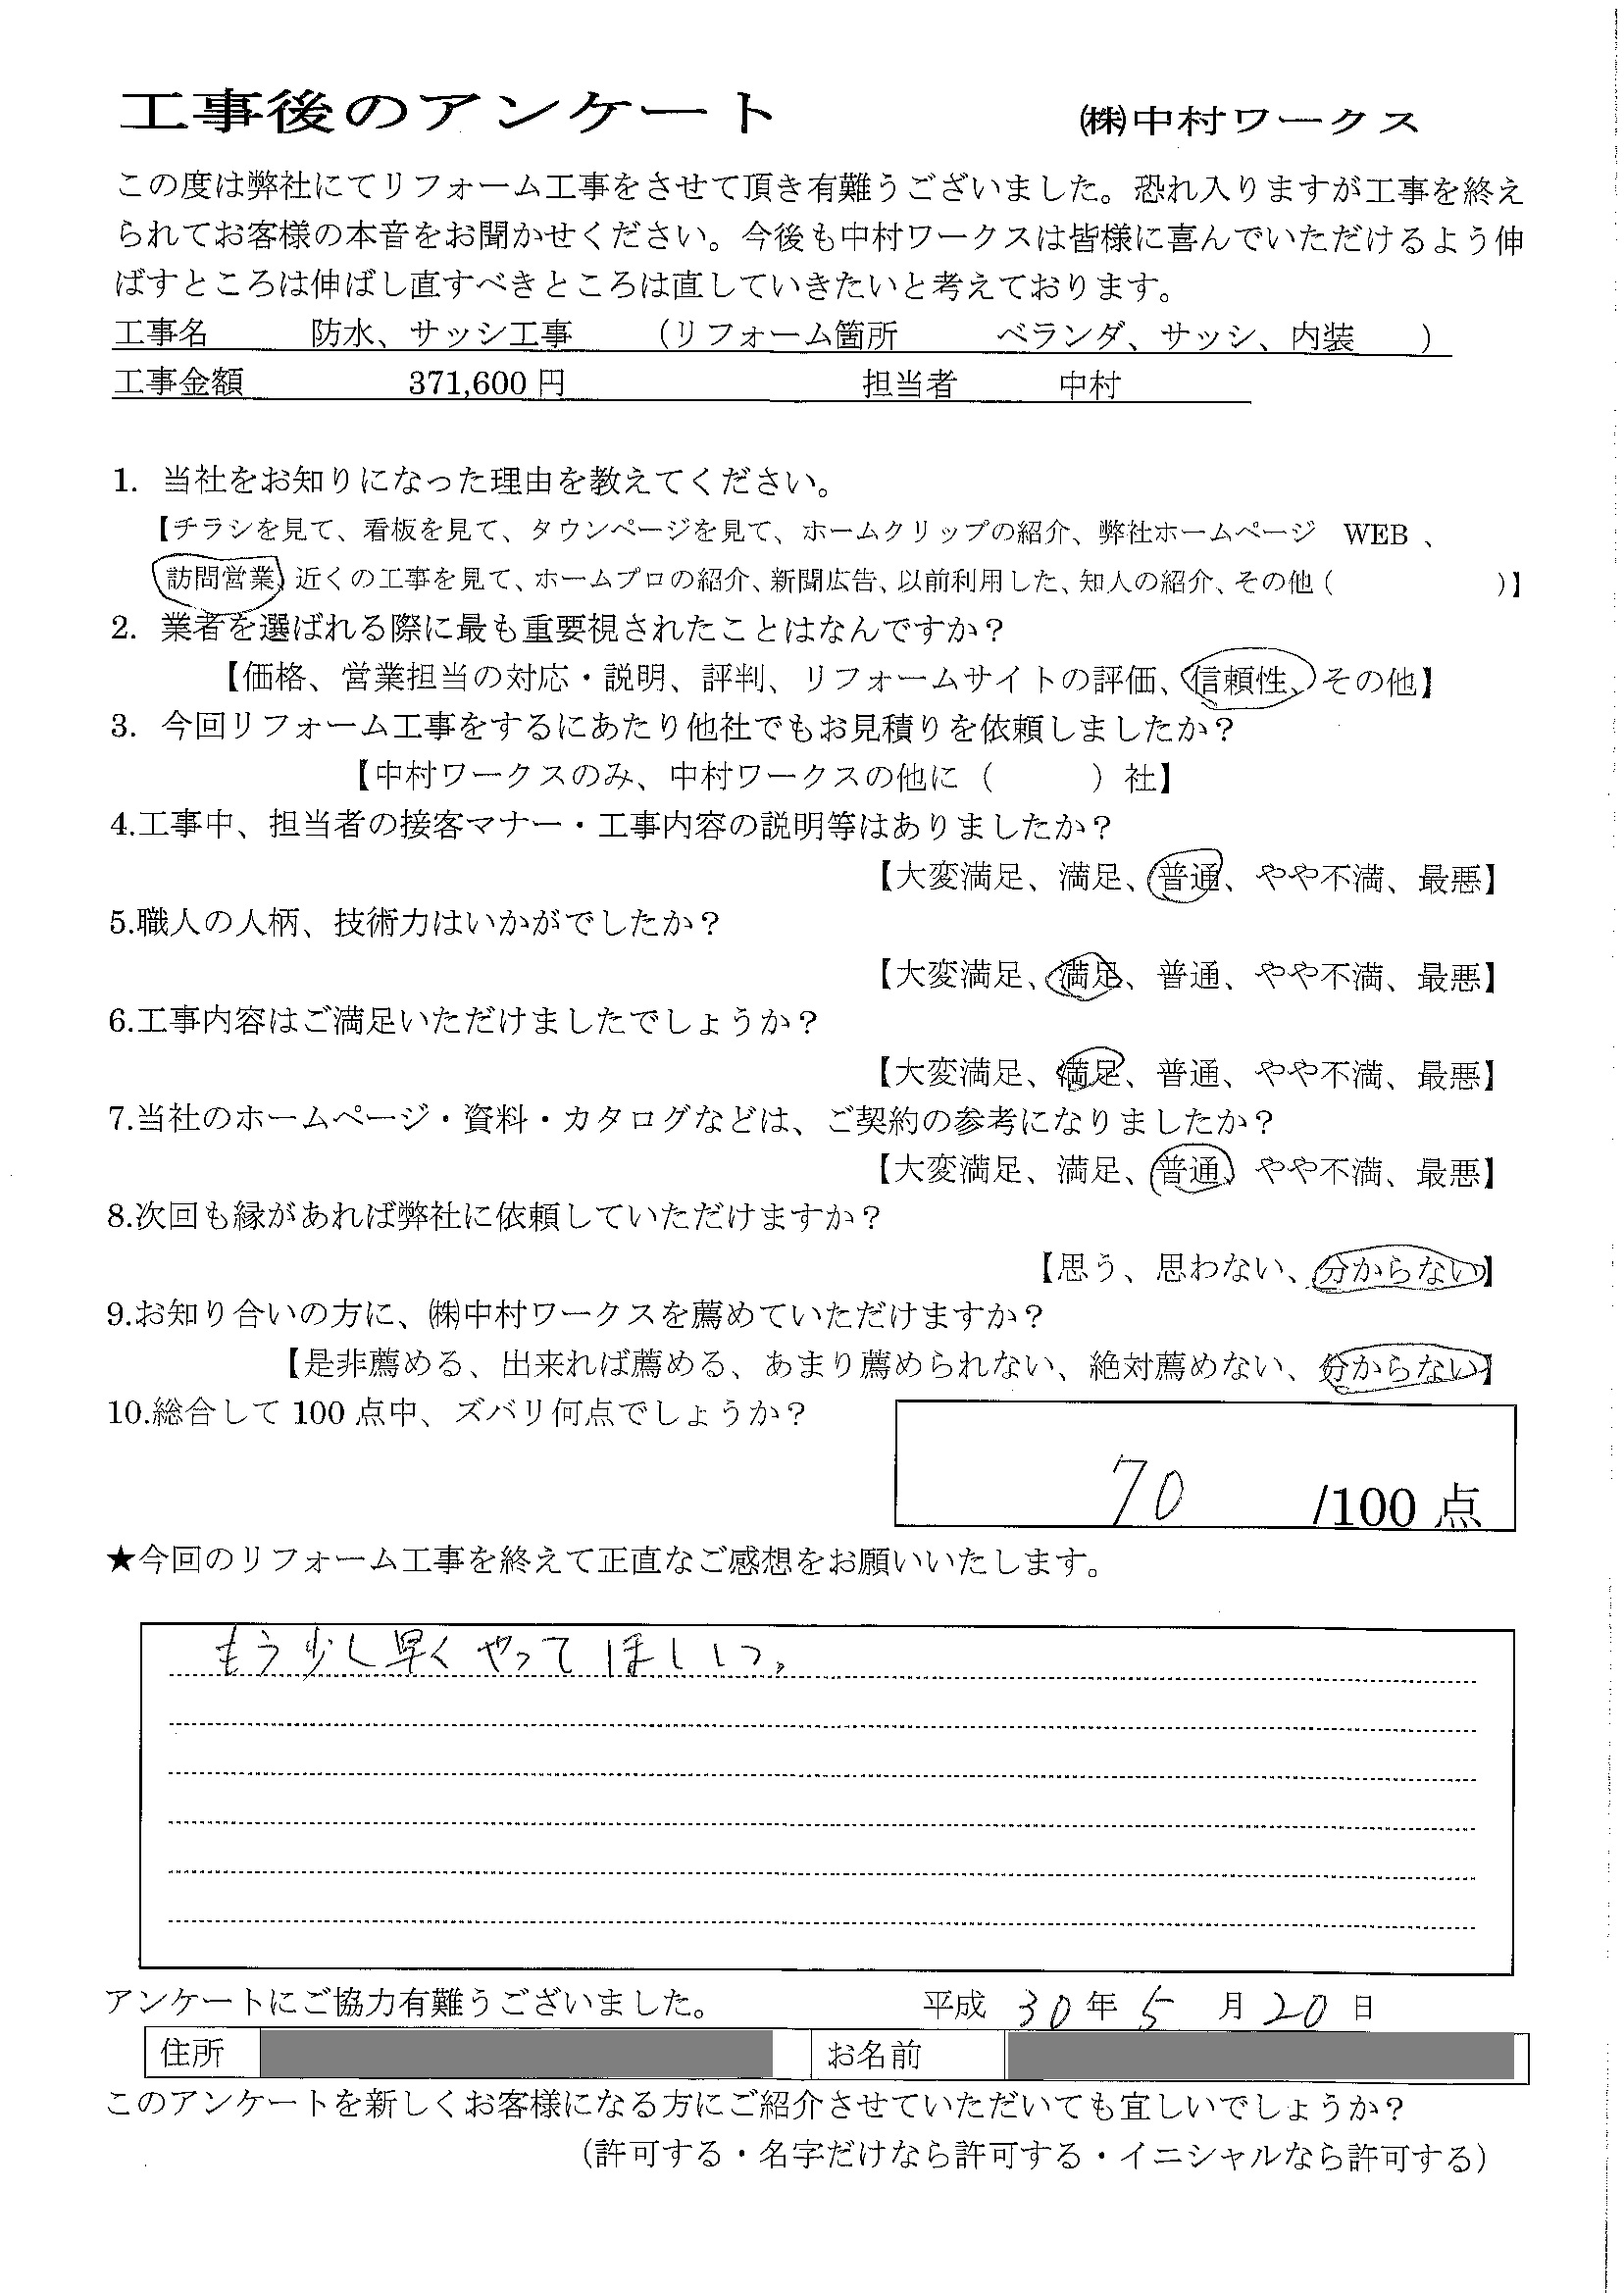 工事後のアンケート ㈱中村ワークス
この度は弊社にてリフォーム工事をさせて頂き有難うございました。恐れ入りますが工事を終え
られてお客様の本音をお聞かせください。今後も中村ワークスは皆様に喜んでいただけるよう伸
ばすところは伸ばし直すべきところは直していきたいと考えております。
工事名 防水、サッシ工事 (リフォーム箇所 ベランダ、サッシ、内装 )
工事金額 371,600 円 担当者 中村
1. 当社をお知りになった理由を教えてください。
【チラシを見て、看板を見て、タウンページを見て、ホームクリップの紹介、弊社ホームページ WEB 、
訪問営業、近くの工事を見て、ホームプロの紹介、新聞広告、以前利用した、知人の紹介、その他 ( )】
2. 業者を選ばれる際に最も重要視されたことはなんですか？
【価格、営業担当の対応・説明、評判、リフォームサイトの評価、信頼性、その他】
3. 今回リフォーム工事をするにあたり他社でもお見積りを依頼しましたか？
【中村ワークスのみ、中村ワークスの他に（ ）社】
4.工事中、担当者の接客マナー・工事内容の説明等はありましたか？
【大変満足、満足、普通、やや不満、最悪】
5.職人の人柄、技術力はいかがでしたか？
【大変満足、満足、普通、やや不満、最悪】
6.工事内容はご満足いただけましたでしょうか？
【大変満足、満足、普通、やや不満、最悪】
7.当社のホームページ・資料・カタログなどは、ご契約の参考になりましたか？
【大変満足、満足、普通、やや不満、最悪】
8.次回も縁があれば弊社に依頼していただけますか？
【思う、思わない、分からない】
9.お知り合いの方に、㈱中村ワークスを薦めていただけますか？
【是非薦める、出来れば薦める、あまり薦められない、絶対薦めない、分からない】
10.総合して 100 点中、ズバリ何点でしょうか？
70 /100 点
★今回のリフォーム工事を終えて正直なご感想をお願いいたします。
もう少し早くやってほしいつ。
アンケートにご協力有難うございました。 平成 30 年 5 月 20 日
住所 お名前
このアンケートを新しくお客様になる方にご紹介させていただいても宜しいでしょうか？
（許可する・名字だけなら許可する・イニシャルなら許可する）